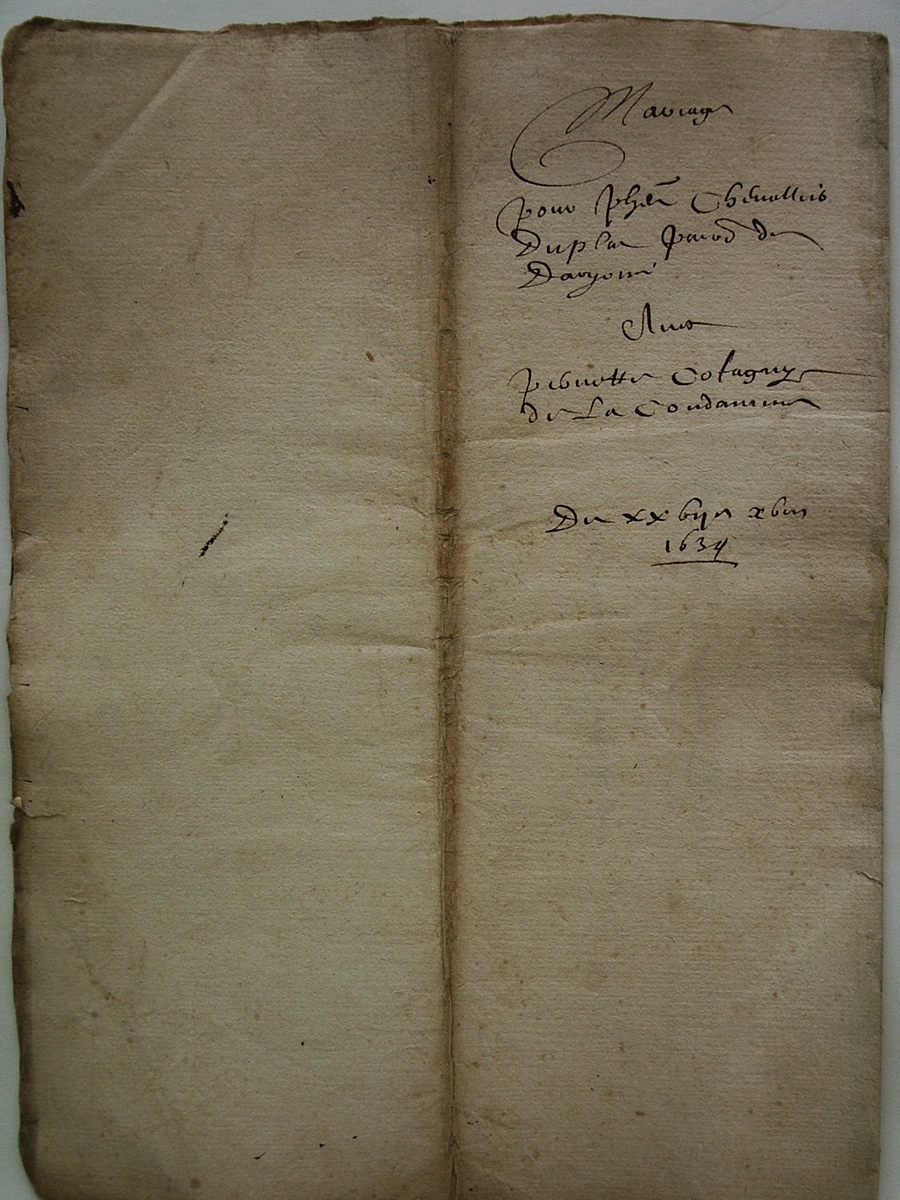 Mariage
pour phē Chevallier
Duplas parod de
Davy
Avec
pernette Cotagny
de La Condamine
Du xxbije xbre
1634